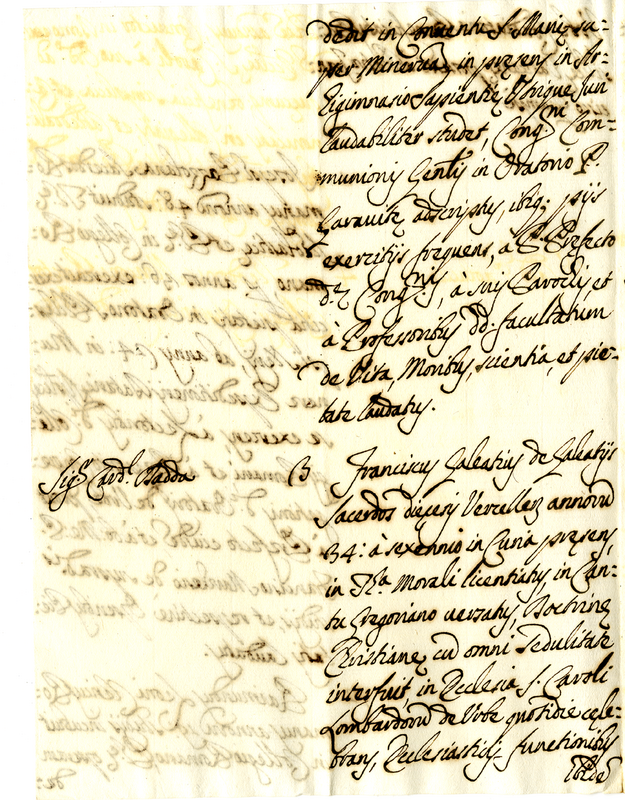 dedit in Conventu S. Mariæ su=
per Minervã, in præsens in Ar=
Eigimnasio Sapientiæ Utrique Juri
laudabiliter studet, Cong.ni Com=
munionis Gen̄lis in Oratorio P.
Caravitæ adscriptus, ibiq; pijs
exercitijs frequens, à P. Præfecto
d.æ Cong.nis, à suis Parochis, et
à Professoribus dd. facultatum
de Vita, Moribus, scientia, et pie=
tate laudatus.
Sig.r Card.l Badda B Franciscus Galeatius de Galeatijs
Sacerdos diecesis Vercellen̄ annorũ
34: à sexennio in Curia præsens,
in Th.a Morali licentiatus, in Can=
tu Gregoriano versatus, Doctrinæ
Christianæ cũ omni sedulitate
interfuit, in Ecclesia S. Caroli
Lombardorũ de Urbe quotidie cele=
brans, Ecclesiasticis functionibus
ibidẽ